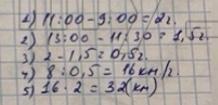 1) 11:00-9:00=2г.
2) 13:00-11:30=1,5г.
3) 2-1,5=0,5г.
4) 8:0,5=16км/г.
5) 16·2=32(км)